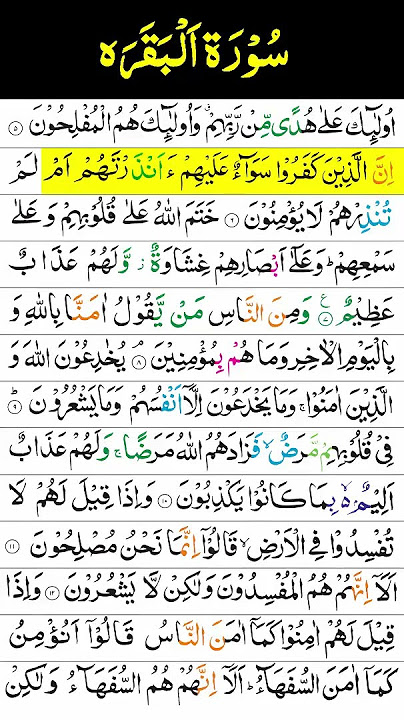 سُوْرَۃ اَلْبَقَرَہ
اُولٰٓئِکَ عَلٰی ھُدًی مِّنْ رَّبِّہِمْ ۗ وَاُولٰٓئِکَ ھُمُ الْمُفْلِحُوْنَ ۵
اِنَّ الَّذِیْنَ کَفَرُوْا سَوَآءٌ عَلَیْہِمْ ءَاَنْذَرْتَہُمْ اَمْ لَمْ
تُنْذِرْھُمْ لَا یُؤْمِنُوْنَ ۶ خَتَمَ اللہُ عَلٰی قُلُوْبِہِمْ وَعَلٰی
سَمْعِہِمْ ؕ وَعَلٰٓی اَبْصَارِہِمْ غِشَاوَۃٌ ۫ وَّلَہُمْ عَذَابٌ
عَظِیْمٌ ۷ وَمِنَ النَّاسِ مَنْ یَّقُوْلُ اٰمَنَّا بِاللہِ وَ
بِالْیَوْمِ الْاٰخِرِ وَمَا ھُمْ بِمُؤْمِنِیْنَ ۸ یُخٰدِعُوْنَ اللہَ وَ
الَّذِیْنَ اٰمَنُوْا ۚ وَمَا یَخْدَعُوْنَ اِلَّآ اَنْفُسَہُمْ وَمَا یَشْعُرُوْنَ ۹
فِیْ قُلُوْبِہِمْ مَّرَضٌ ۙ فَزَادَھُمُ اللہُ مَرَضًا ۚ وَلَہُمْ عَذَابٌ
اَلِیْمٌۢ ۬ۙ بِمَا کَانُوْا یَکْذِبُوْنَ ۱۰ وَاِذَا قِیْلَ لَہُمْ لَا
تُفْسِدُوْا فِی الْاَرْضِ ۙ قَالُوْٓا اِنَّمَا نَحْنُ مُصْلِحُوْنَ ۱۱
اَلَآ اِنَّہُمْ ھُمُ الْمُفْسِدُوْنَ وَلٰکِنْ لَّا یَشْعُرُوْنَ ۱۲ وَاِذَا
قِیْلَ لَہُمْ اٰمِنُوْا کَمَآ اٰمَنَ النَّاسُ قَالُوْٓا اَنُؤْمِنُ
کَمَآ اٰمَنَ السُّفَہَآءُ ؕ اَلَآ اِنَّہُمْ ھُمُ السُّفَہَآءُ وَلٰکِنْ